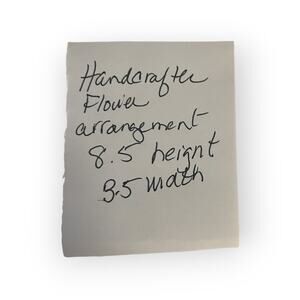 Handcrafted
Flower
arrangement
8.5 height
3.5 width